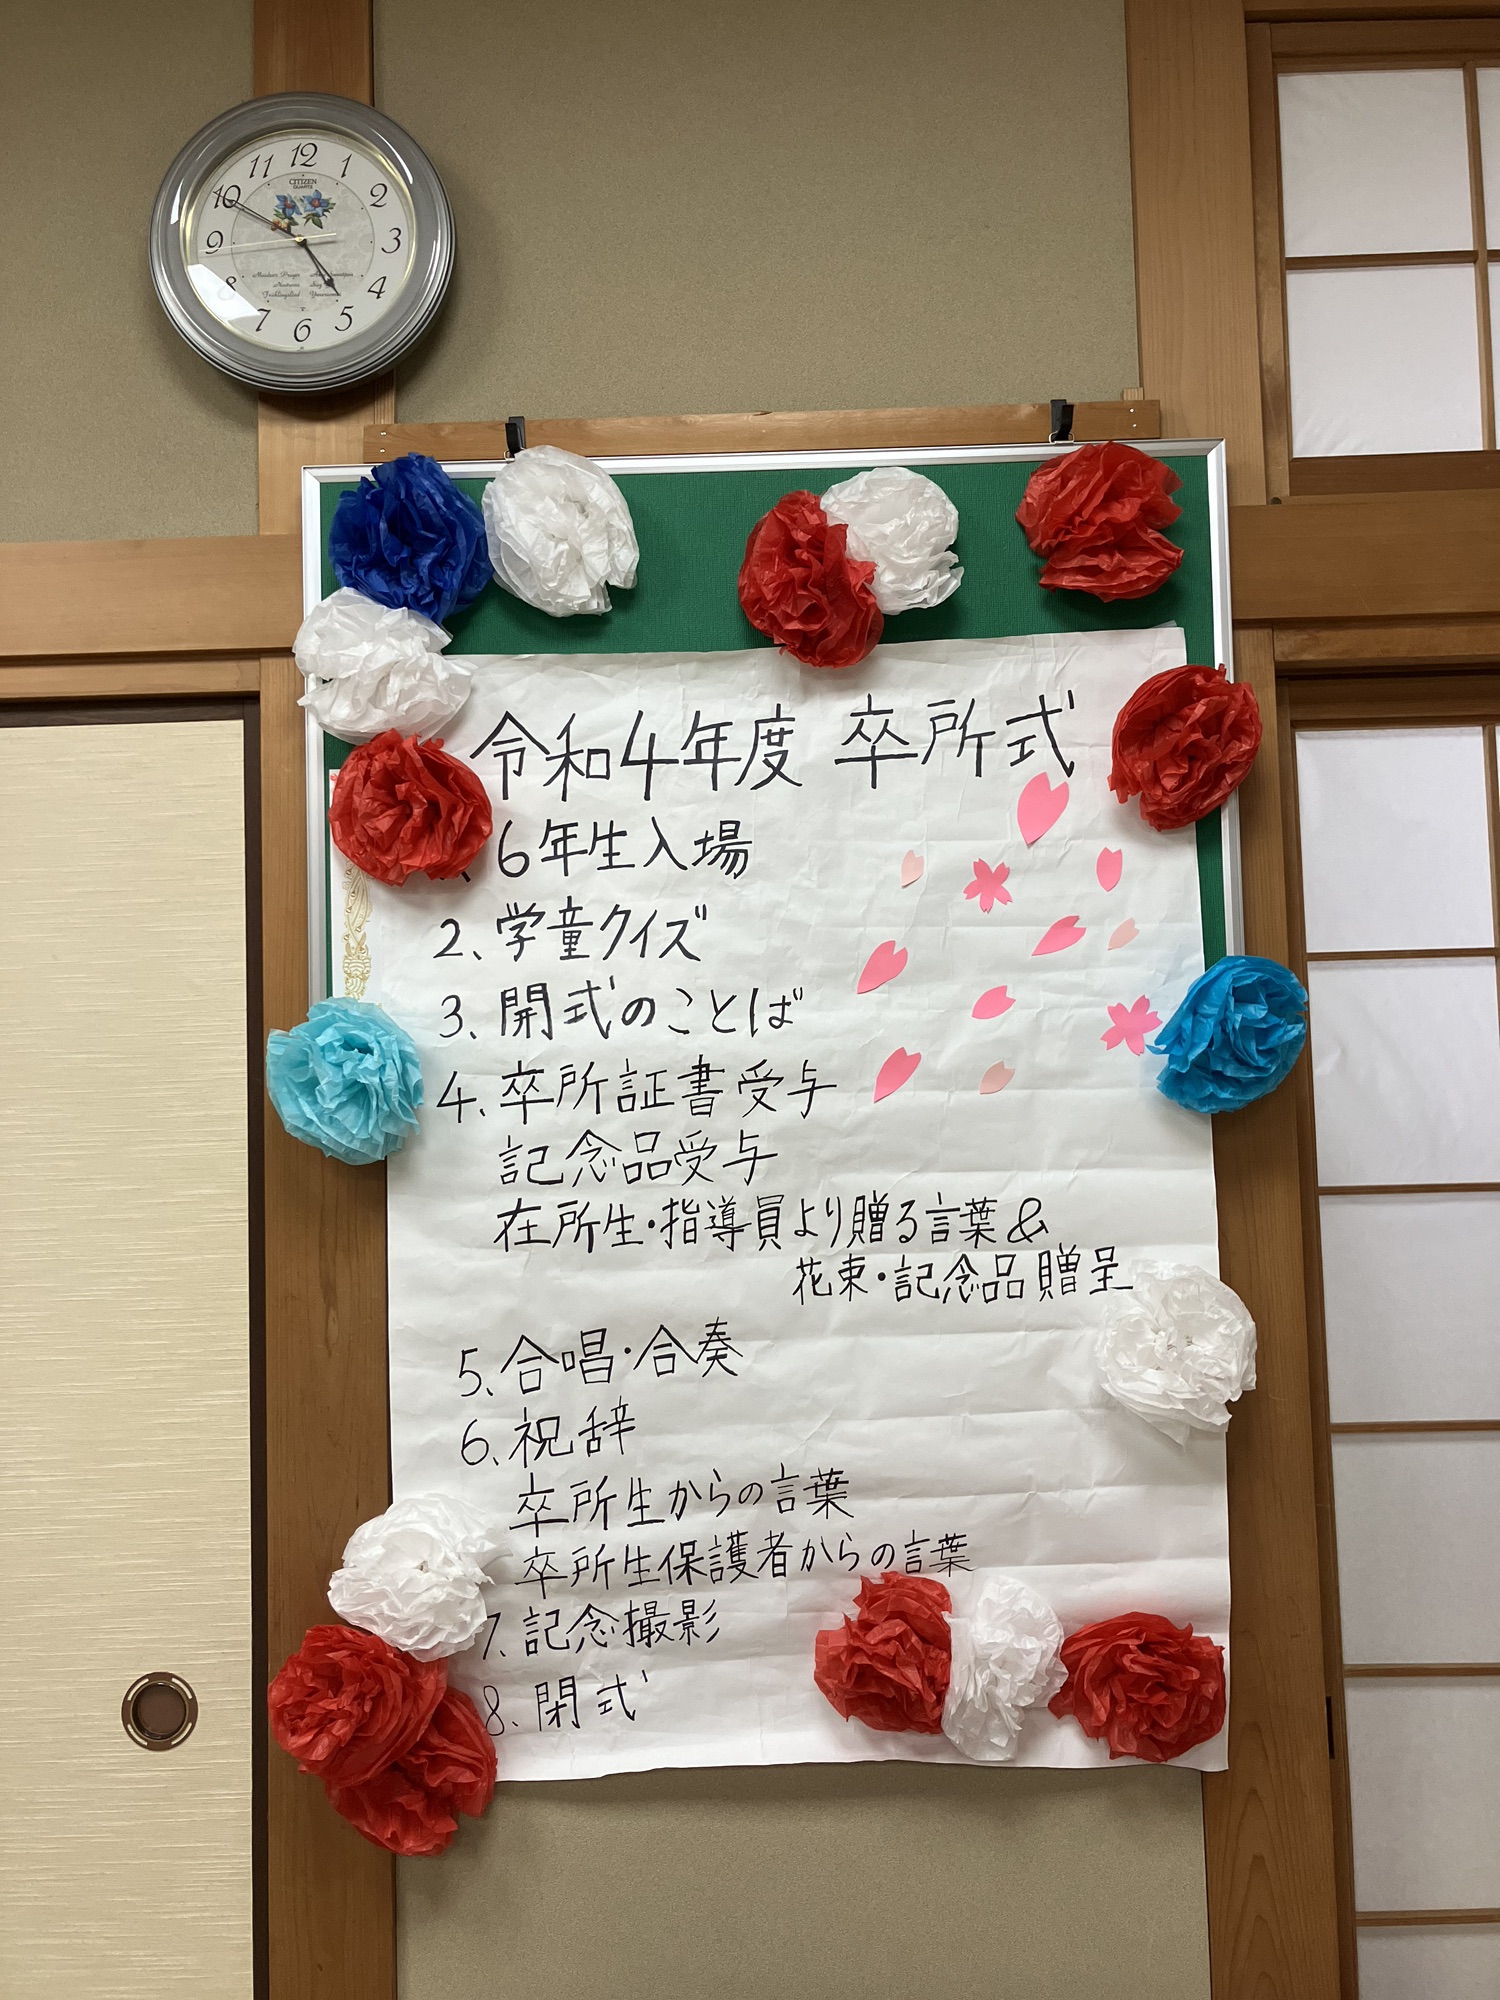 12
11
1
10
2
9
3
8
4
7
5
6
CITIZEN
QUARTZ
令和4年度 卒所式
6年生入場
2、学童クイズ
3、開式のことば
4、卒所証書受与
記念品受与
在所生・指導員より贈る言葉&
花束・記念品贈呈
5、合唱・合奏
6、祝辞
卒所生からの言葉
卒所生保護者からの言葉
7、記念撮影
8、閉式